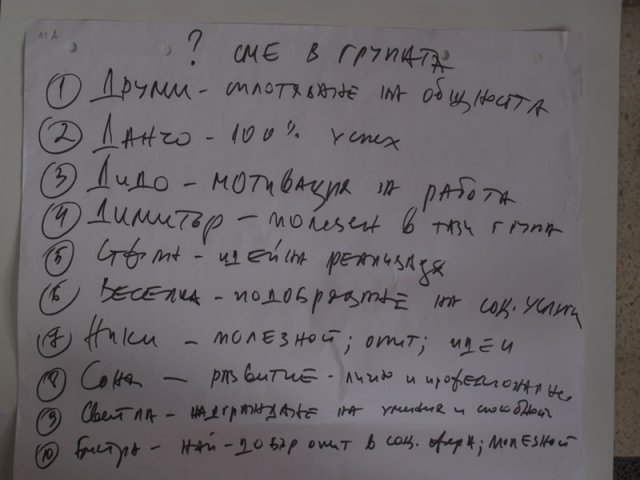 МА
? СМЕ В ГРУПАТА
1 ДРУМИ - СПЛОТЯВАНЕ НА ОБЩНОСТТА
2 ДАНЧО - 100% УСПЕХ
3 ДИДО - МОТИВАЦИЯ ЗА РАБОТА
4 ДИМИТЪР - ПОЛЕЗЕН В ТАЗИ ГРУПА
5 - ИДЕЙНА РЕАЛИЗАЦИЯ
6 ВЕСЕЛКА - ПОДОБРЯВАНЕ НА СОЦ. УСЛУГИ
7 НИКИ - ПОЛЕЗНОСТ; ОПИТ; ИДЕИ
8 СОНЯ - РАЗВИТИЕ - ЛИЧНО И ПРОФЕСИОНАЛНО
9 СВЕТЛА - НАДГРАЖДАНЕ НА УМЕНИЯ И СПОСОБНОСТИ
10 БИСТРА - НАЙ-ДОБЪР ОПИТ В СОЦ. СФЕРА; ПОЛЕЗНОСТ